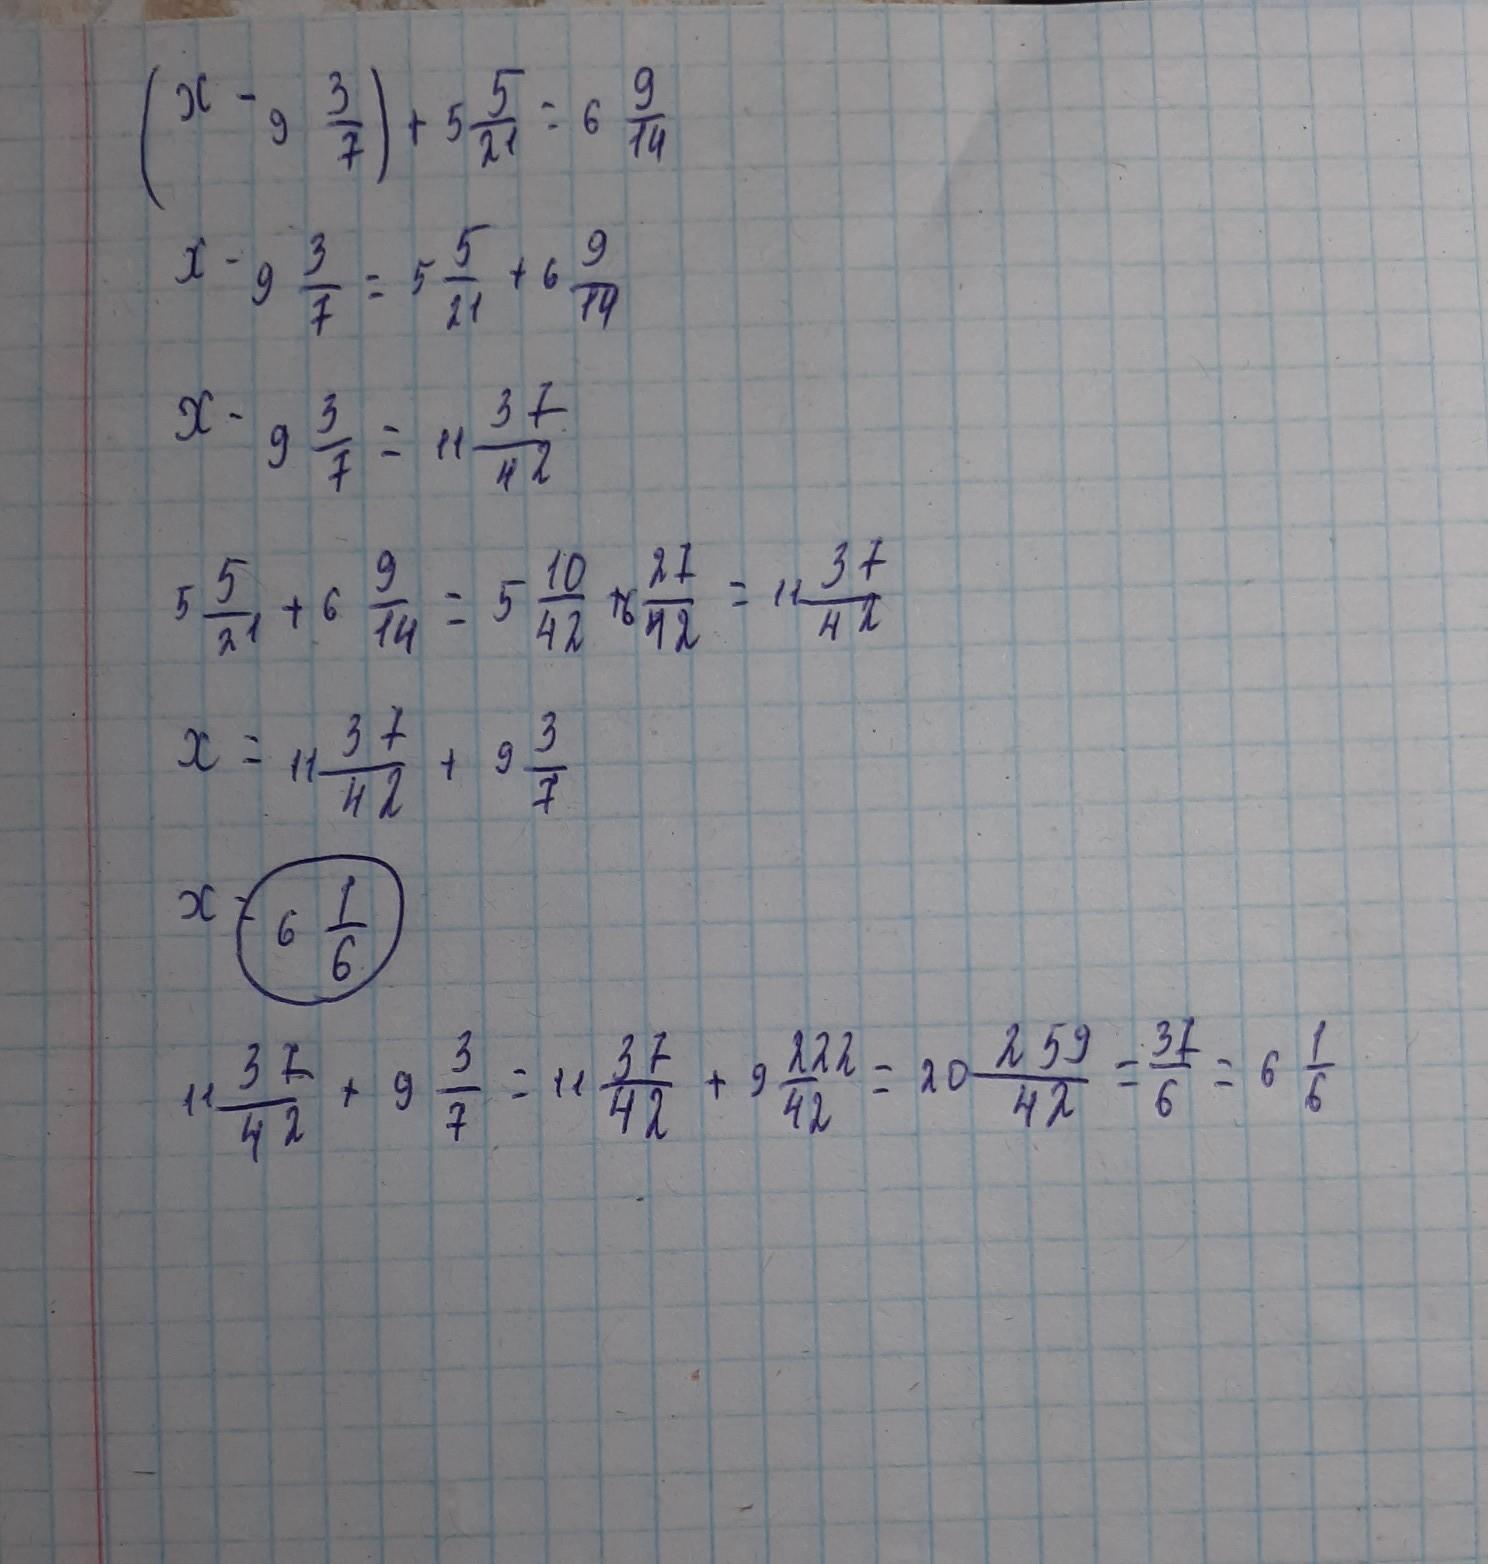 (x - 9 3/7) + 5 5/21 = 6 9/14
x - 9 3/7 = 5 5/21 + 6 9/14
x - 9 3/7 = 11 37/42
5 5/21 + 6 9/14 = 5 10/42 + 6 27/42 = 11 37/42
x = 11 37/42 + 9 3/7
x = 6 1/6
11 37/42 + 9 3/7 = 11 37/42 + 9 222/42 = 20 259/42 = 37/6 = 6 1/6